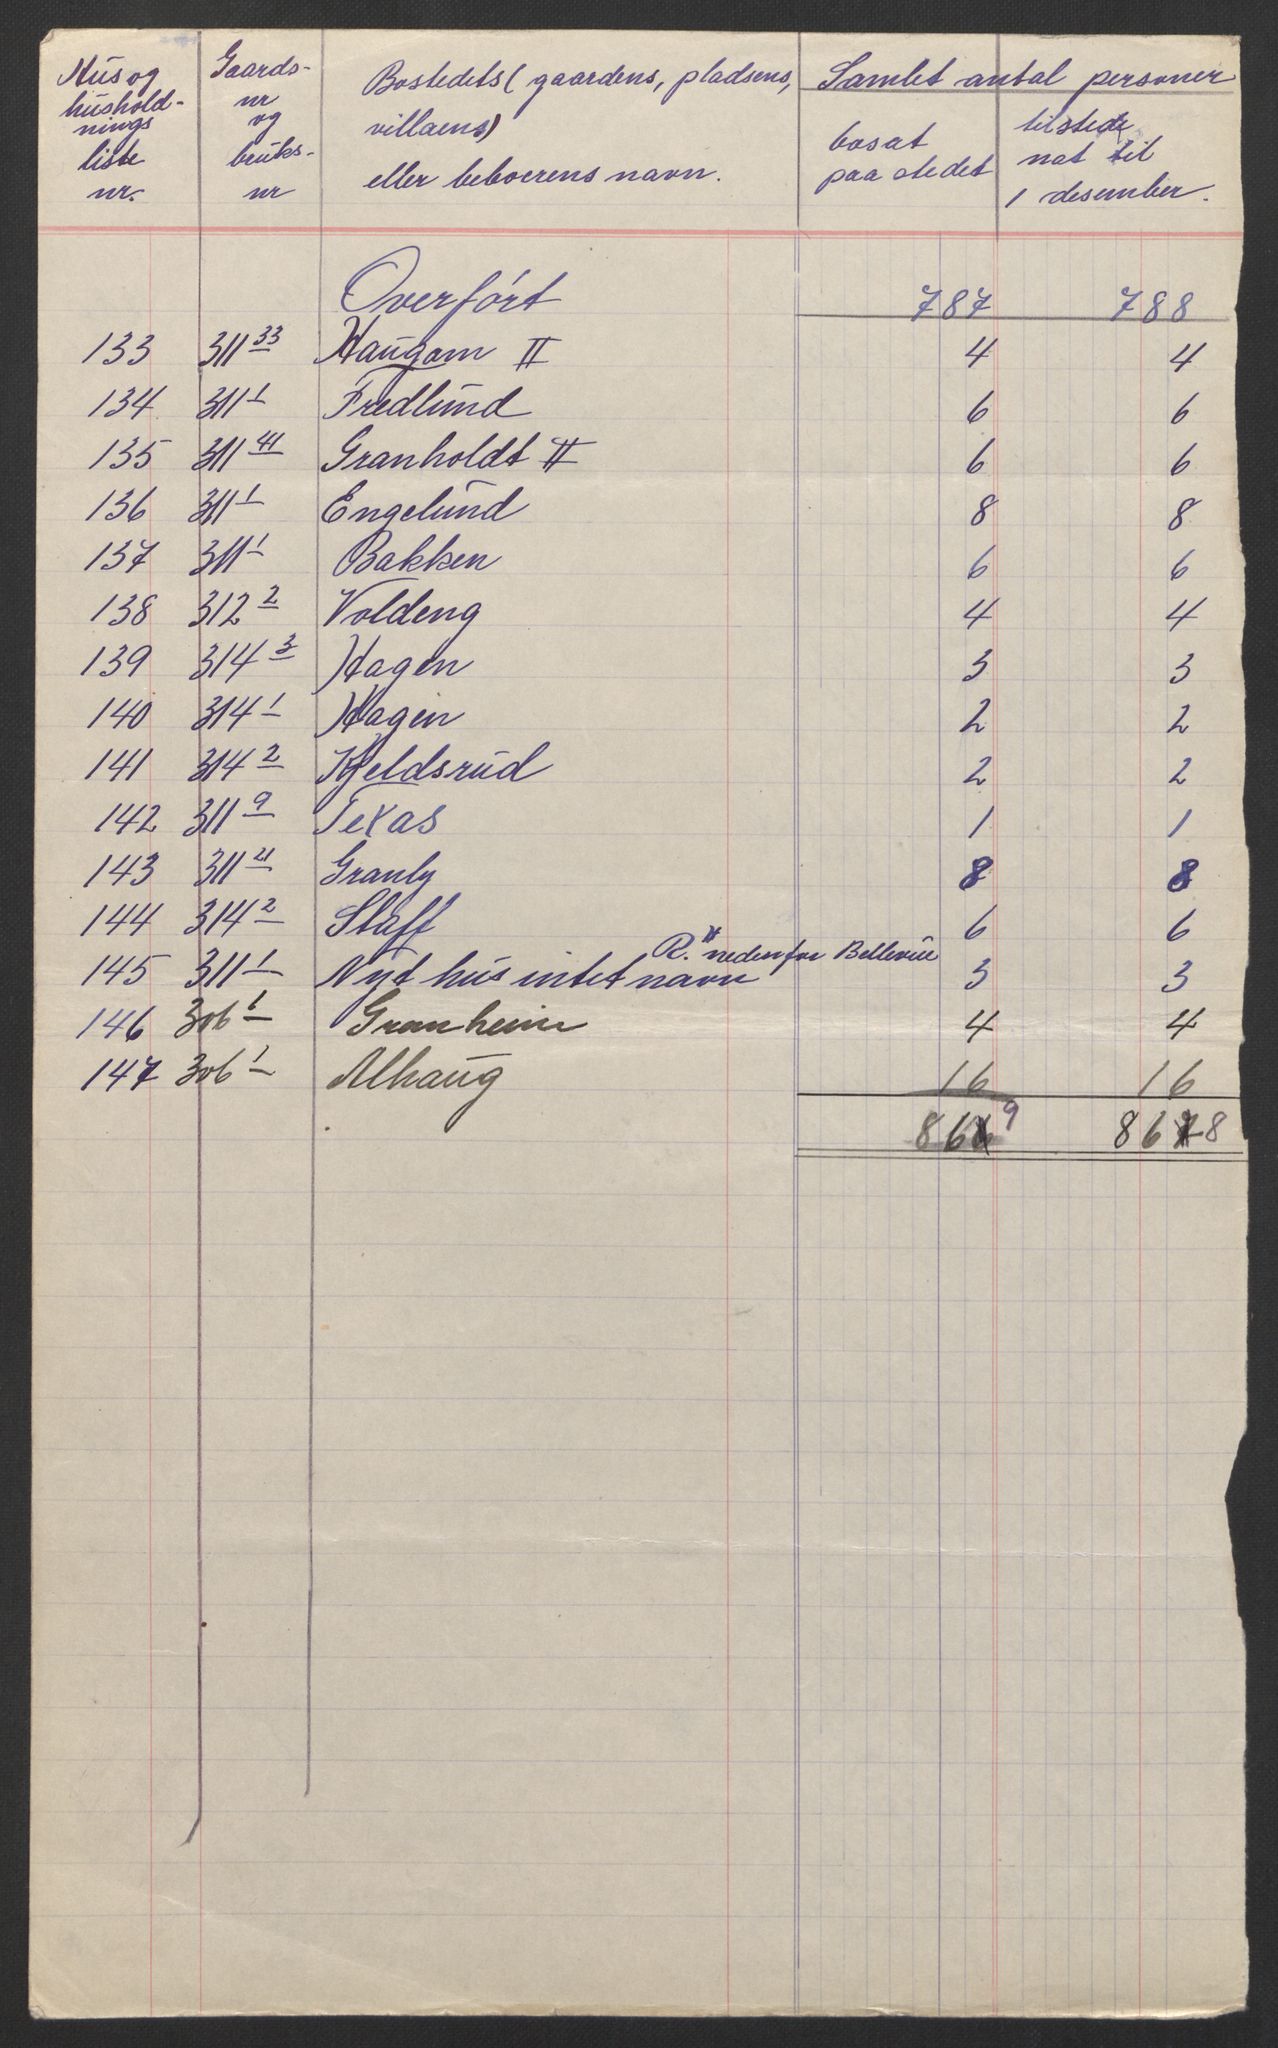 Hus og
hushold-
nings
liste
nr.
Gaards-
nr
og
bruks-
nr
Bostedets (gaardens, pladsens,
villaens)
eller beboerens navn.
Samlet antal personer
bosat
paa stedet
tilstede
nat til
1 desember.
Overført 787 788
133 311 33 Haugom II 4 4
134 311 1 Fredlund 6 6
135 311 41 Granholdt II 6 6
136 311 1 Engelund 8 8
137 311 1 Bakken 6 6
138 312 2 Voldeng 4 4
139 314 3 Hagen 3 3
140 314 1 Hagen 2 2
141 314 2 Kjeldsrud 2 2
142 311 9 Texas 1 1
143 311 21 Granly 8 8
144 314 2 Staff 6 6
R. nedenfor Bellevue
145 311 1 Nyt hus intet navn 3 3
146 306 1 Granheim 4 4
147 306 1 Alhaug 16 16
869 868